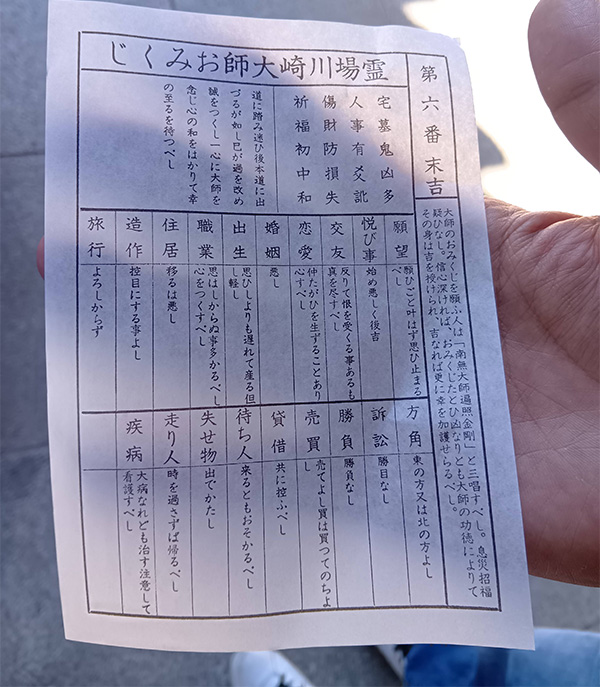 第六番 末吉
霊場川崎大師おみくじ
宅墓鬼凶多
人事有爻訛
傷財防損失
祈福初中和
道に踏み迷ひ後本道に出
づるが如し巳が過を改め
誠をつくし一心に大師を
念じ心の和をはかりて幸
の至るを待つべし
大師のおみくじを願ふ人は「南無大師遍照金剛」と三唱すべし。息災招福
疑ひなし。信心深ければ、おみくじたとひ凶なりとも大師の功徳によりて
その身は吉を授けられ、吉なれば更に幸を加護せらるべし。
願望
願ひごと叶はず思ひ止まる
べし
悦び事
始め悪しく後吉
交友
反りて恨を受くる事あるも
真を尽すべし
恋愛
仲たがひを生ずることあり
心すべし
婚姻
悪し
出生
思ひしよりも遅れて産る但
し軽し
職業
思はしからぬ事多かるべし
心をつくすべし
住居
移るは悪し
造作
控目にする事よし
旅行
よろしからず
方角
東の方又は北の方よし
訴訟
勝目なし
勝負
勝負なし
売買
売てよし買は買つてのちよ
し
貸借
共に控ふべし
待ち人
来るともおそかるべし
失せ物
出でかたし
走り人
時を過さずば帰るべし
疾病
大病なれども治す注意して
看護すべし